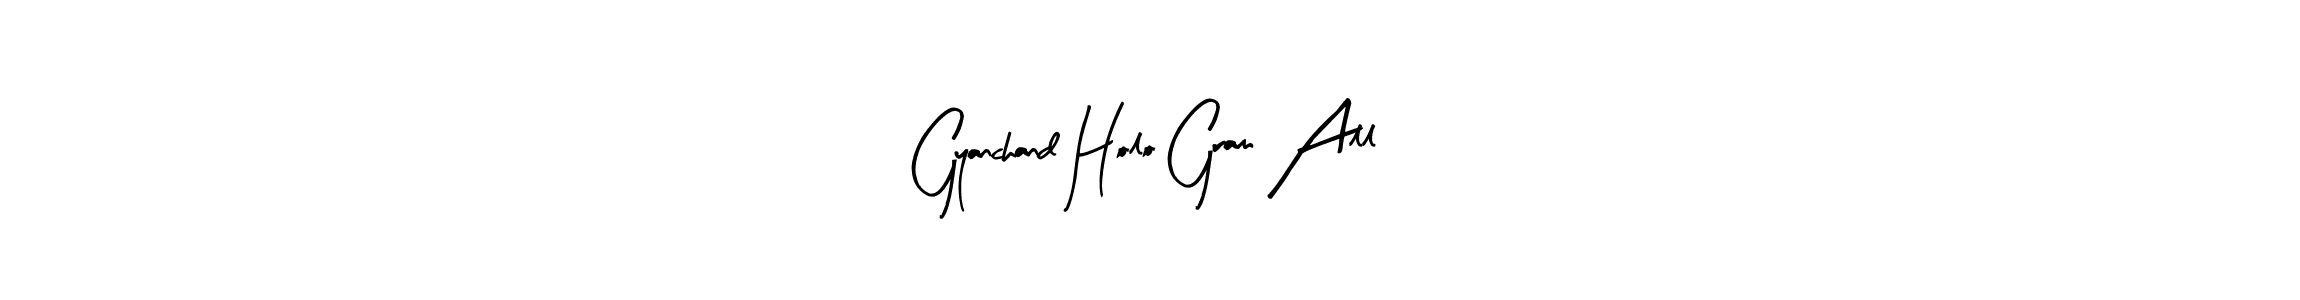 Gyanchand Holo Gram All